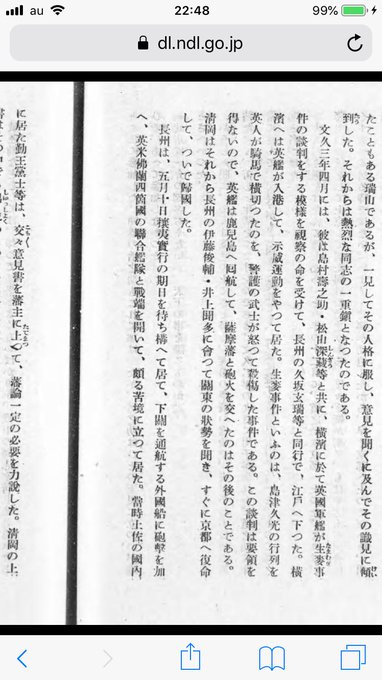 au 22:48 99%
dl.ndl.go.jp
たこともある瑞山であるが、一見してその人格に服し、意見を聞くに及んでその識見に傾
到した。それからは熱烈な同志の一重鎭となつたのである。
文久三年四月には、彼は島村壽之助・松山深藏等と共に、横濱に於て英國軍艦が生麥事
件の談判をする模樣を視察の命を受けて、長州の久坂玄瑞等と同行で、江戸へ下つた。横
濱へは英艦が入港して、示威運動をやつて居た。生麥事件といふのは、島津久光の行列を
英人が騎馬で横切つたのを、警護の武士が怒つて殺傷した事件である。この談判は要領を
得ないので、英艦は鹿兒島へ囘航して、薩摩藩と砲火を交へたのはその後のことである。
清岡はそれから長州の伊藤俊輔・井上聞多に會つて關東の狀勢を聞き、すぐに京都へ復命
して、ついで歸國した。
長州は、五月十日攘夷實行の期日を待ち構へて居て、下關を通航する外國船に砲擊を加
へ、英米佛蘭四箇國の聯合艦隊と戰端を開いて、頗る苦境に立つて居た。當時土佐の國内
に居た勤王黨士等は、交々意見書を藩主に上つて、藩論一定の必要を力說した。清岡の上